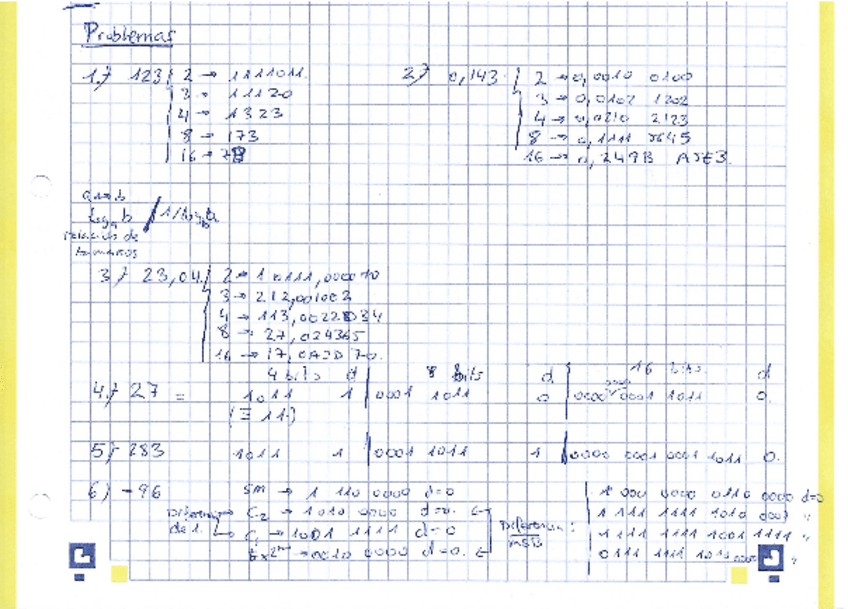 Problemas
1.) 123 { 2 → 1111011.
3 → 11120
4 → 1323
8 → 173
16 → 7B
2.) 0,143. { 2 → 0,0010 0100
3 → 0,0102 1202
4 → 0,0210 2123
8 → 0,1111
16 → 0,249B A5E3.
a → b
log_a b / 1/log_b a
relación de
tamaños
3.) 23,04. { 2 → 10111,000010
3 → 212,001002
4 → 113,
8 → 27,024365
16 → 17,
4 bits d | 8 bits d | 16 bits. d
4.) 27 = 1011 1 | 0001 1011 0 | 0000 0001 1011 0.
(≡ 11.)
5) 283 1011 1 | 0001 1011 1 | 0000 0001 0001 1011 0.
6) -96 SM → 1 110 0000 d=0
Diferencia → C2 → 1010 0000 d=0. ←
de 1. → C1 → 1001 1111 d=0
→ 0010 0000 d=0. ←
Diferencia :
MSB
1 000 0000 0110 0000 d=0
1 111 1111 1010 0000 "
1 111 1111 1001 1111 "
0111 1111 1010 0000 "